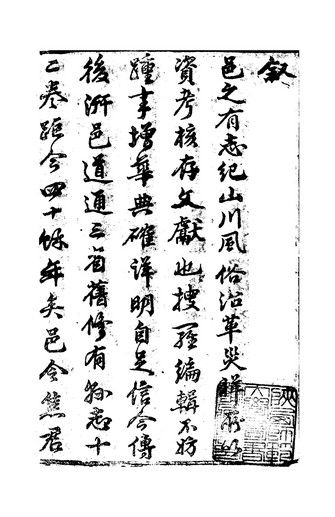 叙
邑之有志紀山川風俗沿革災祥所以
資考核存文獻也搜羅編輯不妨
踵事增華典確詳明自足信今傳
後汧邑道通三省舊修有孫志十
二卷距今四十餘年矣邑令焦君